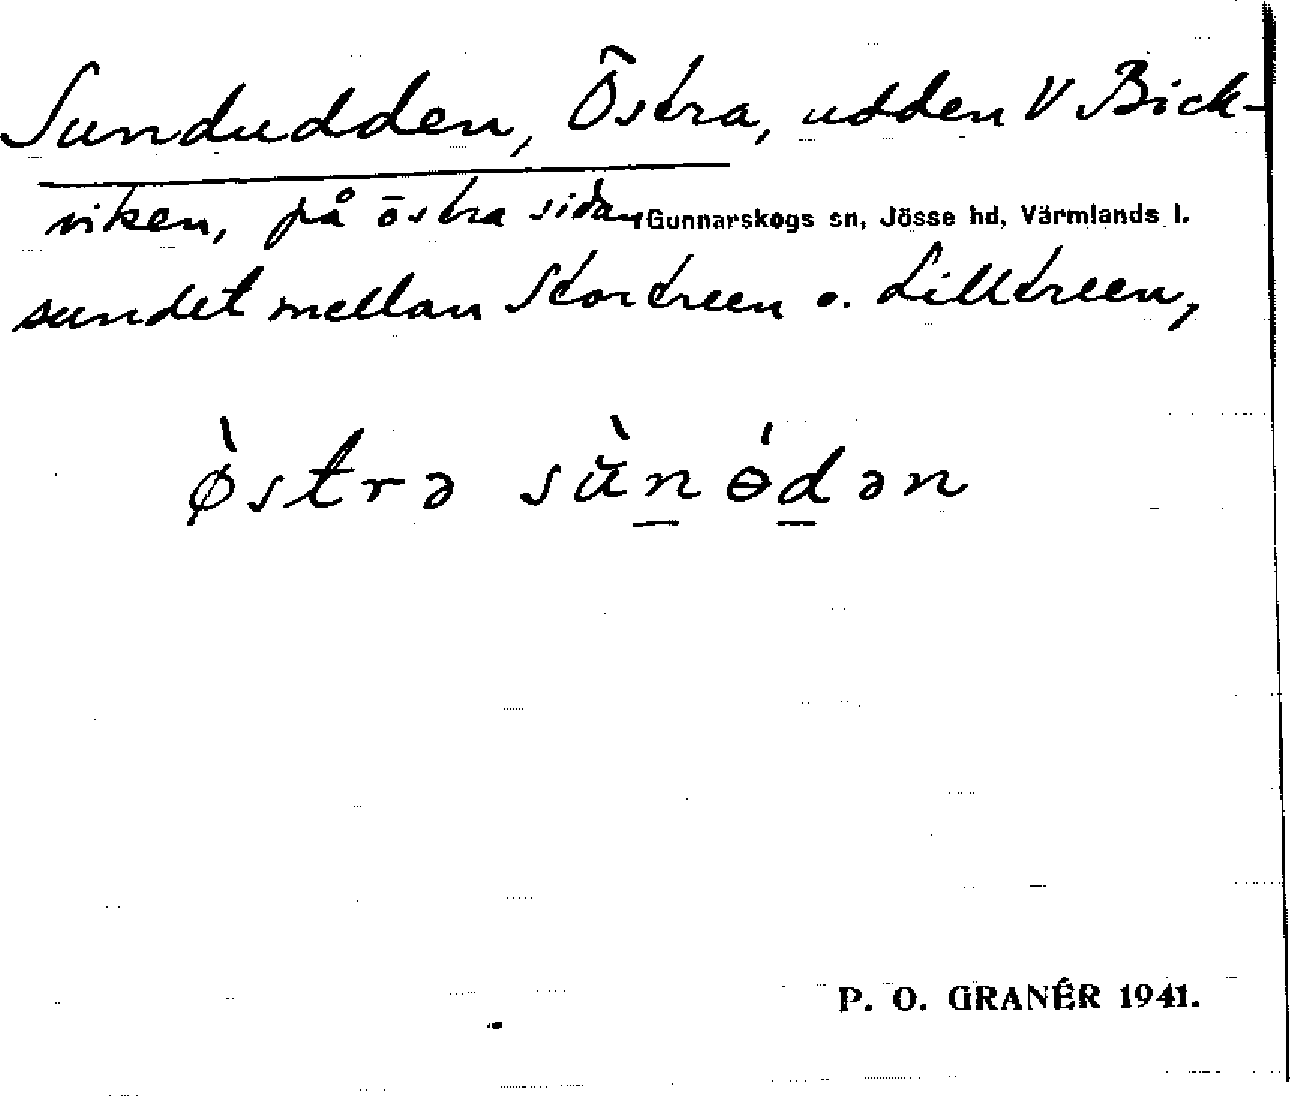 Sundudden, Östra, udden V Bick-
viken, på östra sidan Gunnarskogs sn, Jösse hd, Värmlands l.
sundet mellan Stortreen o. Lilltreen,
ø̀strə sùn ɵ́dən
P. O. GRANÉR 1941.